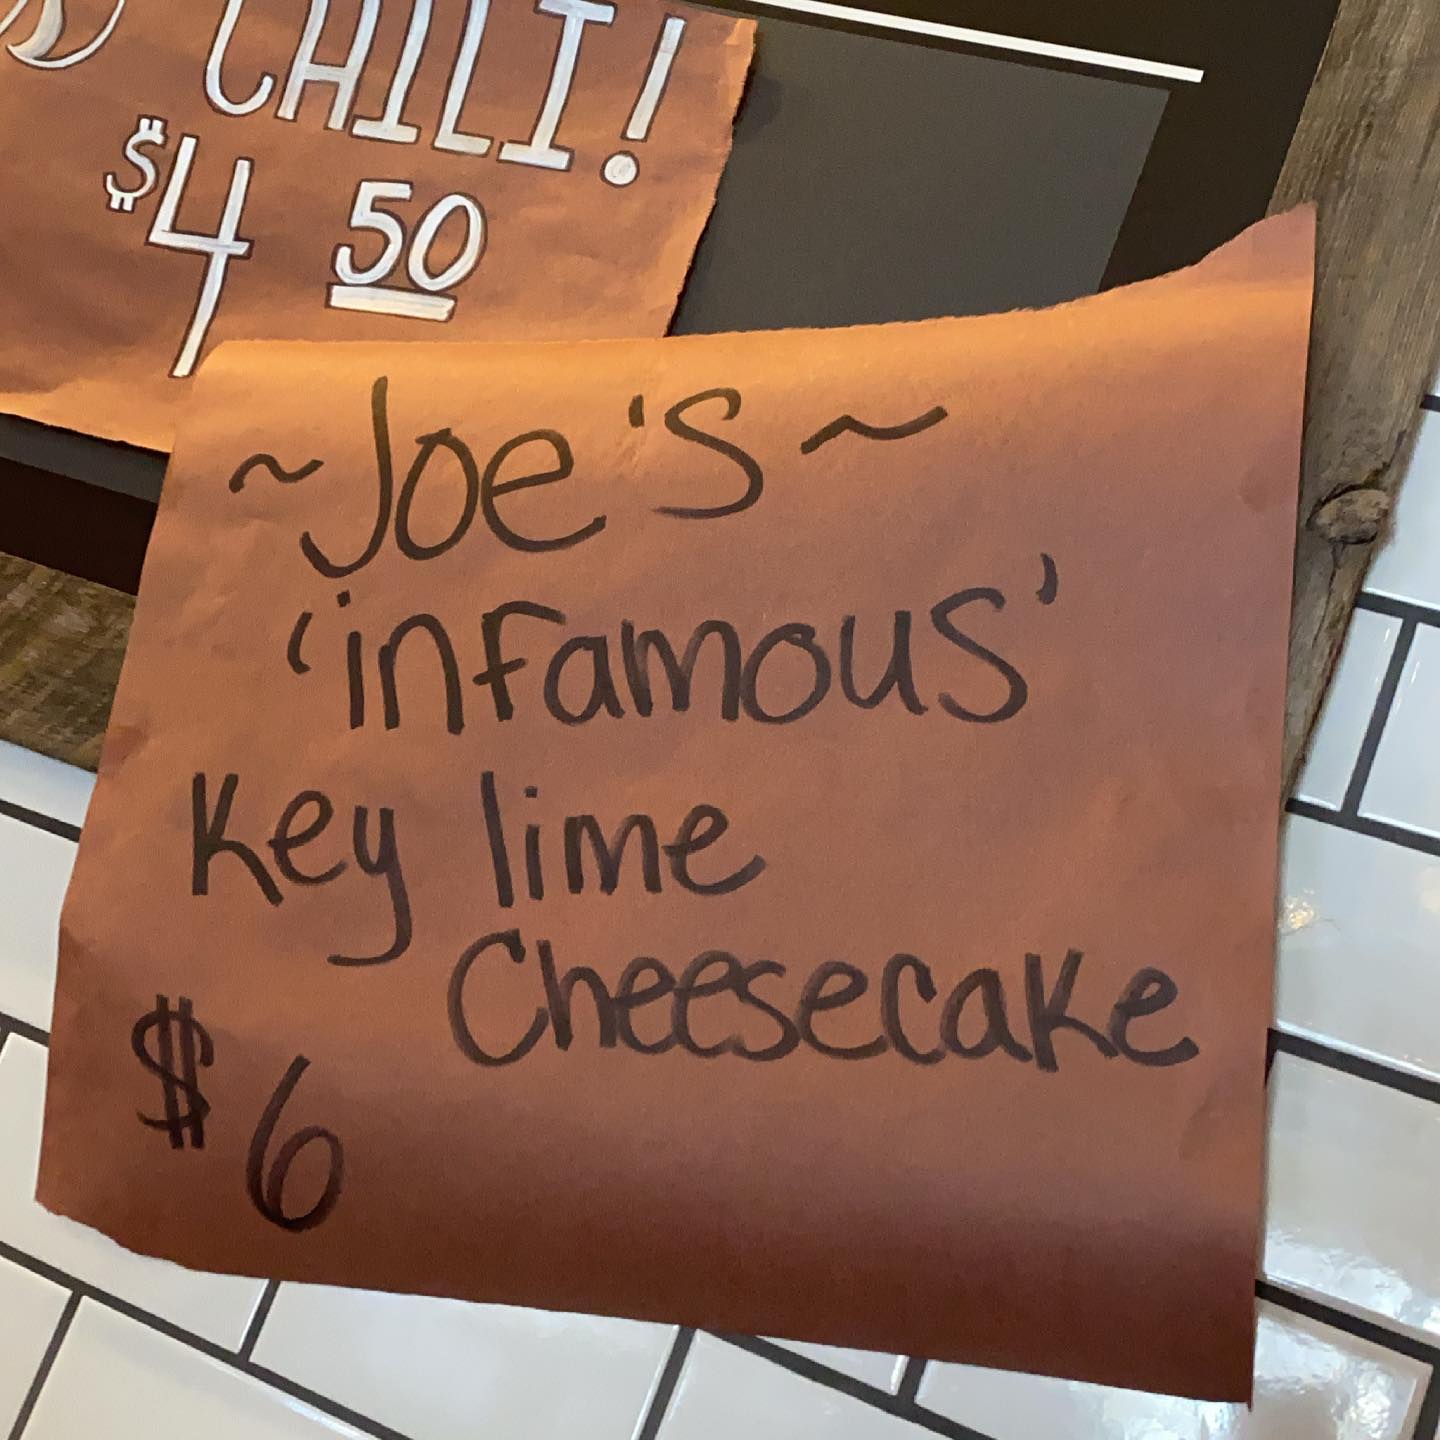 CHILI!
$4 50
~Joe's~
'infamous'
Key lime
Cheesecake
$6